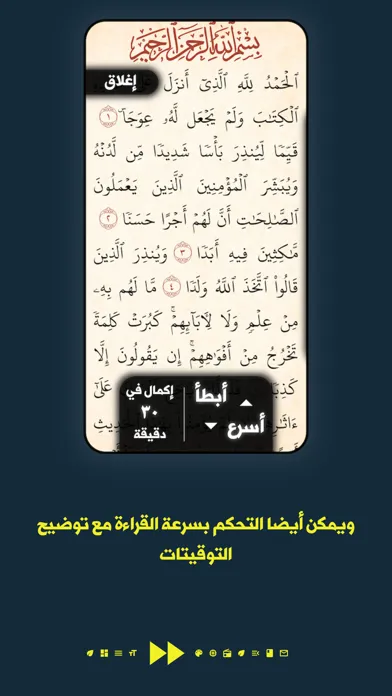 بِسْمِ ٱللَّهِ ٱلرَّحْمَٰنِ ٱلرَّحِيمِ
ٱلْحَمْدُ لِلَّهِ ٱلَّذِىٓ أَنزَلَ
إغلاق
ٱلْكِتَٰبَ وَلَمْ يَجْعَل لَّهُۥ عِوَجَاۜ ١
قَيِّمًا لِّيُنذِرَ بَأْسًا شَدِيدًا مِّن لَّدُنْهُ
وَيُبَشِّرَ ٱلْمُؤْمِنِينَ ٱلَّذِينَ يَعْمَلُونَ
ٱلصَّٰلِحَٰتِ أَنَّ لَهُمْ أَجْرًا حَسَنًا ٢
مَّٰكِثِينَ فِيهِ أَبَدًا ٣ وَيُنذِرَ ٱلَّذِينَ
قَالُوا۟ ٱتَّخَذَ ٱللَّهُ وَلَدًا ٤ مَّا لَهُم بِهِۦ
مِنْ عِلْمٍ وَلَا لِـَٔابَآئِهِمْ ۚ كَبُرَتْ كَلِمَةً
تَخْرُجُ مِنْ أَفْوَٰهِهِمْ ۚ إِن يَقُولُونَ إِلَّا
أبطأ
أسرع
إكمال في
٣٠
دقيقة
ويمكن أيضا التحكم بسرعة القراءة مع توضيح
التوقيتات